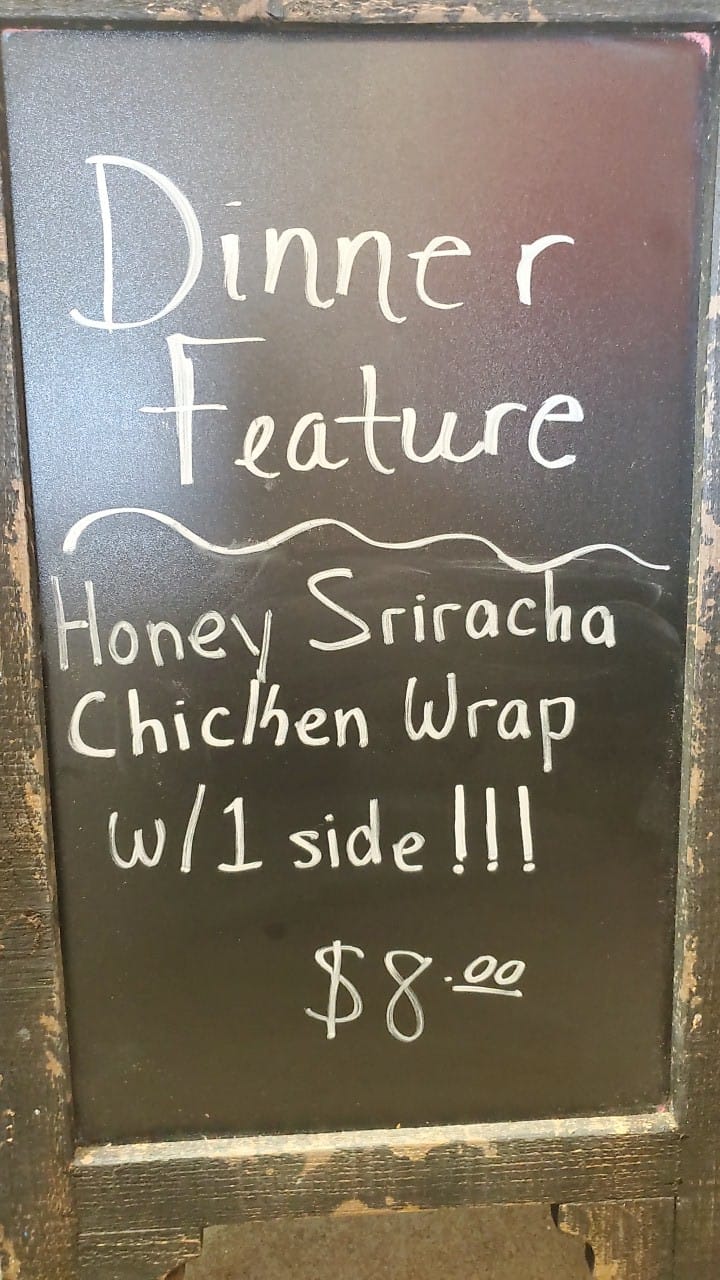 Dinner
Feature
Honey Sriracha
Chicken Wrap
w/1 side!!!
$8.00